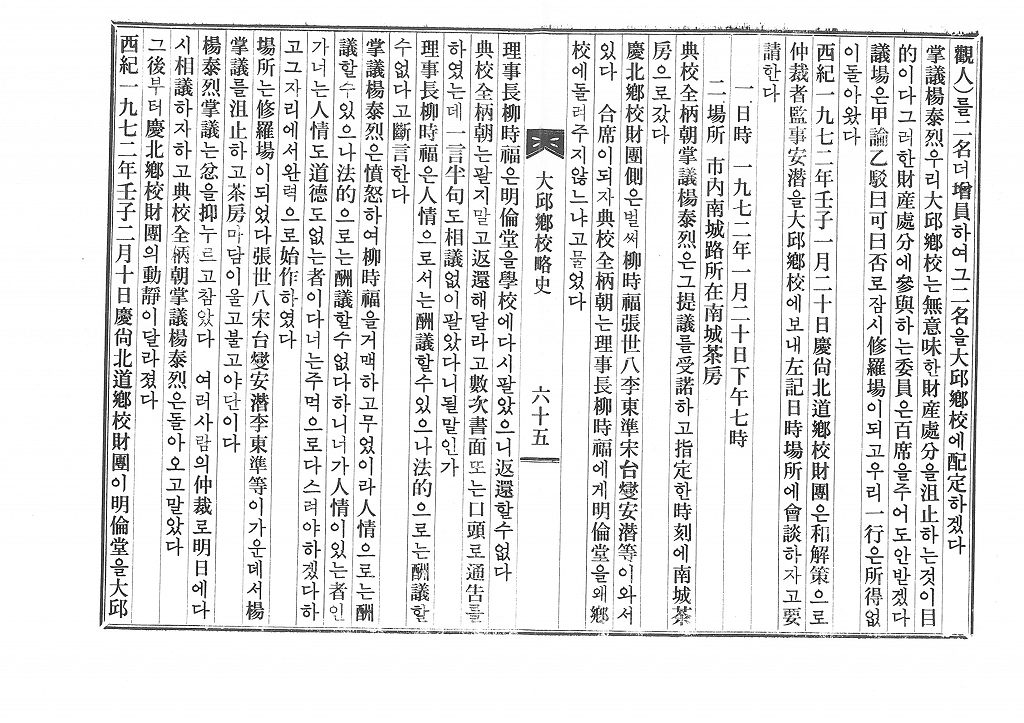 觀人)를二名더增員하여그二名을大邱鄕校에配定하겠다
掌議楊泰烈우리大邱鄕校는無意味한財産處分을沮止하는것이目
的이다그러한財産處分에參與하는委員은百席을주어도안받겠다
議場은甲論乙駁曰可曰否로잠시修羅場이되고우리一行은所得없
이돌아왔다
西紀一九七二年壬子一月二十日慶尙北道鄕校財團은和解策으로
仲裁者監事安潛을大邱鄕校에보내左記日時場所에會談하자고要
請한다
一日時 一九七二年一月二十日下午七時
二場所 市內南城路所在南城茶房
典校全柄朝掌議楊泰烈은그提議를受諾하고指定한時刻에南城茶
房으로갔다
慶北鄕校財團側은벌써柳時福張世八李東準宋台燮安潛等이와서
있다 合席이되자典校全柄朝는理事長柳時福에게明倫堂을왜鄕
校에돌려주지않느냐고물었다
大邱鄕校略史 六十五
理事長柳時福은明倫堂을學校에다시팔았으니返還할수없다
典校全柄朝는팔지말고返還해달라고數次書面또는口頭로通告를
하였는데一言半句도相議없이팔았다니될말인가
理事長柳時福은人情으로서는酬議할수있으나法的으로는酬議할
수없다고斷言한다
掌議楊泰烈은憤怒하여柳時福을거맥하고무었이라人情으로는酬
議할수있으나法的으로는酬議할수없다하니너가人情이있는者인
가너는人情도道德도없는者이다너는주먹으로다스려야하겠다하
고그자리에서완력으로始作하였다
場所는修羅場이되였다張世八宋台燮安潛李東準等이가운데서楊
掌議를沮止하고茶房마담이울고불고야단이다
楊泰烈掌議는忿을抑누르고참았다 여러사람의仲裁로明日에다
시相議하자하고典校全柄朝掌議楊泰烈은돌아오고말았다
그後부터慶北鄕校財團의動靜이달라졌다
西紀一九七二年壬子二月十日慶尙北道鄕校財團이明倫堂을大邱